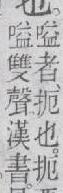 嗌者、扼也。扼
也。嗌雙聲漢書。